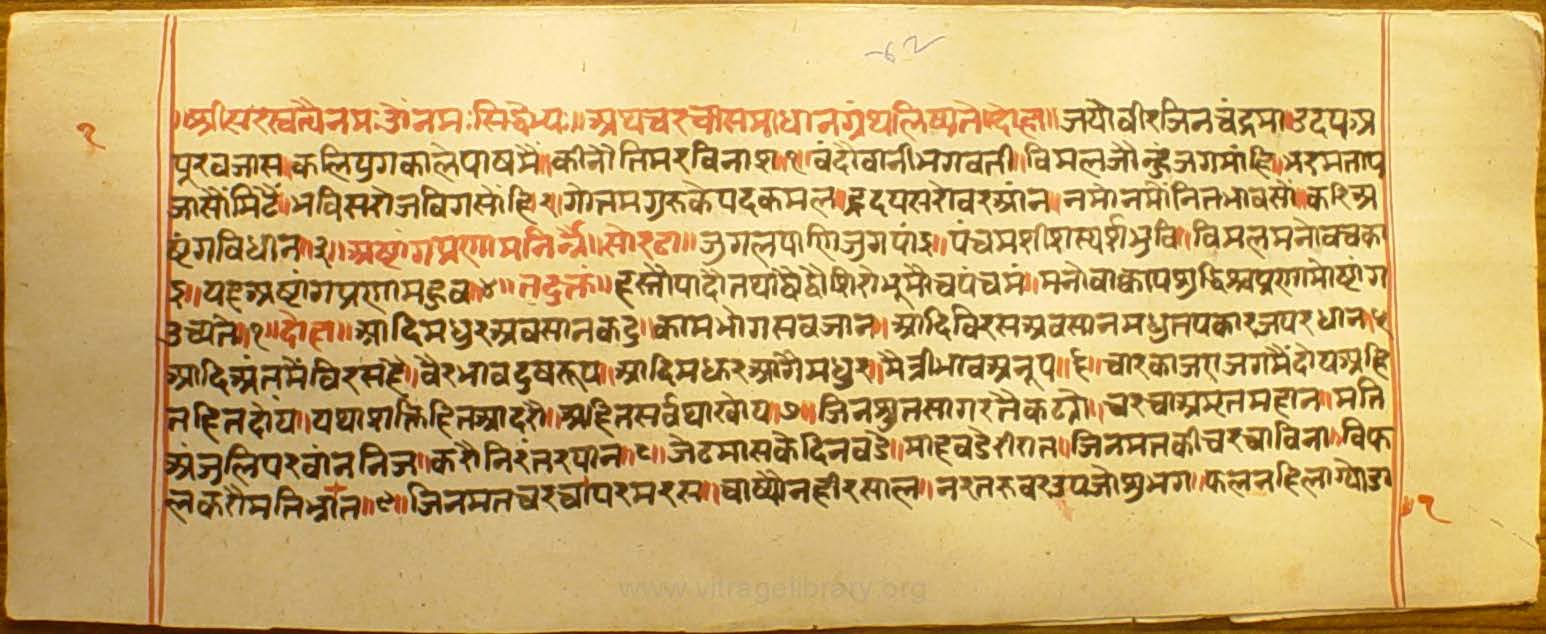 ६२
॥श्रीसरस्वत्यैनमः॥ॐनमःसिद्धेभ्यः॥अथचरचासमाधानग्रंथलिष्यते॥दोहा॥जयौवीरजिनचंद्रमा॥उदयअ
१
पूरवजास॥कलियुगकालेपाषमैं॥कीनौतिमरविनाश॥१॥वंदौवानीभगवती॥विमलजौन्हजगमांहि॥भरमताप
जासौंमिटैं॥भविसरोजविगसांहि॥२॥गोतमगुरुकेपदकमल॥हृदयसरोवरआंन॥नमोनमौंनितभावसौं॥करिअ
ष्टंगविधान॥३॥अष्टांगप्रणामनिर्न्नै॥सोरठा॥जुगलपाणिजुगपांइ॥पंचमशीशस्पर्शभुवि॥विमलमनोवचका
इ॥यहअष्टांगप्रणामहुव॥४॥तदुक्तं॥हस्तौपादौतथाद्वौद्वौशिरोभुमौचपंचमं॥मनोवाक्कायशुद्धिश्चप्रणामोष्टांग
उच्यते॥१॥दोहा॥आदिमधुरअवसानकटु॥कामभोगसबजान॥आदिविरसअवसानमधुतपकारजपरधान॥५
आदिअंतमैंविरसहै॥वैरभावदुषरूप॥आदिमधुरआगैमधुर॥मैत्रीभावअनूप॥६॥चारकाजराजगमैंदोयअहि
तहितदोय॥यथाशक्तिहितआदरौ॥अहितसर्वघाखोय॥७॥जिनश्रुतसागरतैंकढी॥चरचाअमृतमहान॥मति
अंजुलिपरवांननिज॥करौनिरंतरपान॥८॥जेठमासकेदिनवडे॥माहवडेरीरात॥जिनमतकीचरचाविना॥विफ
लकरौमतिभ्रात॥९॥जिनमतचरचापरमरस॥चाष्यौनहीरसाल॥नरतरूवरउपजोशुभग॥फलनहिलाग्योडा
१
www.vitragelibrary.org